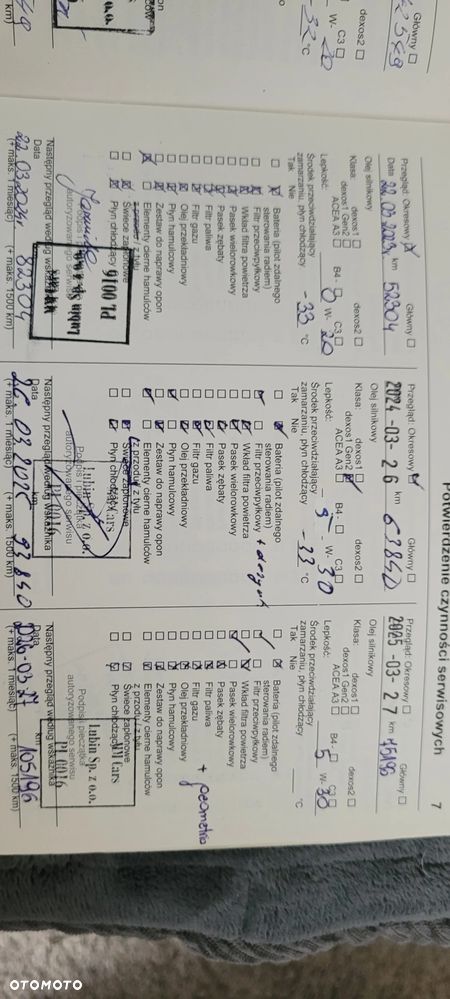 7
Potwierdzenie czynności serwisowych
Przegląd: Okresowy Główny
Data 22.03.2023r km 52304
Olej silnikowy
Klasa: dexos1 dexos2
dexos1 Gen2
ACEA A3 B4 - C3
Lepkość: 0 W- 20
Środek przeciwdziałający
zamarzaniu, płyn chłodzący -33 °C
Tak Nie
Bateria (pilot zdalnego
sterowania radiem)
Filtr przeciwpyłkowy
Wkład filtra powietrza
Pasek wielorowkowy
Pasek zębaty
Filtr paliwa
Filtr gazu
Olej przekładniowy
Płyn hamulcowy
Zestaw do naprawy opon
Elementy cierne hamulców
z przodu / z tyłu
Świece zapłonowe
Płyn chłodzący
PL 0016
Lubin Sp. z o.o.
autoryzowanego serwisu
Następny przegląd według wskaźnika
22.03.2024r 82304
Data
(+ maks. 1 miesiąc) (+ maks. 1500 km)
Przegląd: Okresowy Główny
2024-03-26 km 63850
Olej silnikowy
Klasa: dexos1 dexos2
dexos1 Gen2
ACEA A3 B4 - C3
Lepkość: 5 W- 30
Środek przeciwdziałający
zamarzaniu, płyn chłodzący -33 °C
Tak Nie
Bateria (pilot zdalnego
sterowania radiem)
Filtr przeciwpyłkowy
Wkład filtra powietrza
Pasek wielorowkowy
Pasek zębaty
Filtr paliwa
Filtr gazu
Olej przekładniowy
Płyn hamulcowy
Zestaw do naprawy opon
Elementy cierne hamulców
z przodu / z tyłu
Świece zapłonowe
Płyn chłodzący
Lubin Sp. z o.o.
Podpis i pieczątka
autoryzowanego serwisu
Następny przegląd według wskaźnika
26.03.2025 93850
Data km
(+ maks. 1 miesiąc) (+ maks. 1500 km)
Przegląd: Okresowy Główny
2025-03-27 km 75196
Olej silnikowy
Klasa: dexos1 dexos2
dexos1 Gen2
ACEA A3 B4 - C3
Lepkość: 5 W- 30
Środek przeciwdziałający
zamarzaniu, płyn chłodzący °C
Tak Nie
Bateria (pilot zdalnego
sterowania radiem)
Filtr przeciwpyłkowy
Wkład filtra powietrza
Pasek wielorowkowy
Pasek zębaty
Filtr paliwa
Filtr gazu
Olej przekładniowy
+ geometria
Płyn hamulcowy
Zestaw do naprawy opon
Elementy cierne hamulców
z przodu / z tyłu
Świece zapłonowe
Płyn chłodzący
Lubin Sp. z o.o.
PL 0016
Podpis i pieczątka
autoryzowanego serwisu
Następny przegląd według wskaźnika
2026-03-27 105196
Data km
(+ maks. 1 miesiąc) (+ maks. 1500 km)
OTOMOTO